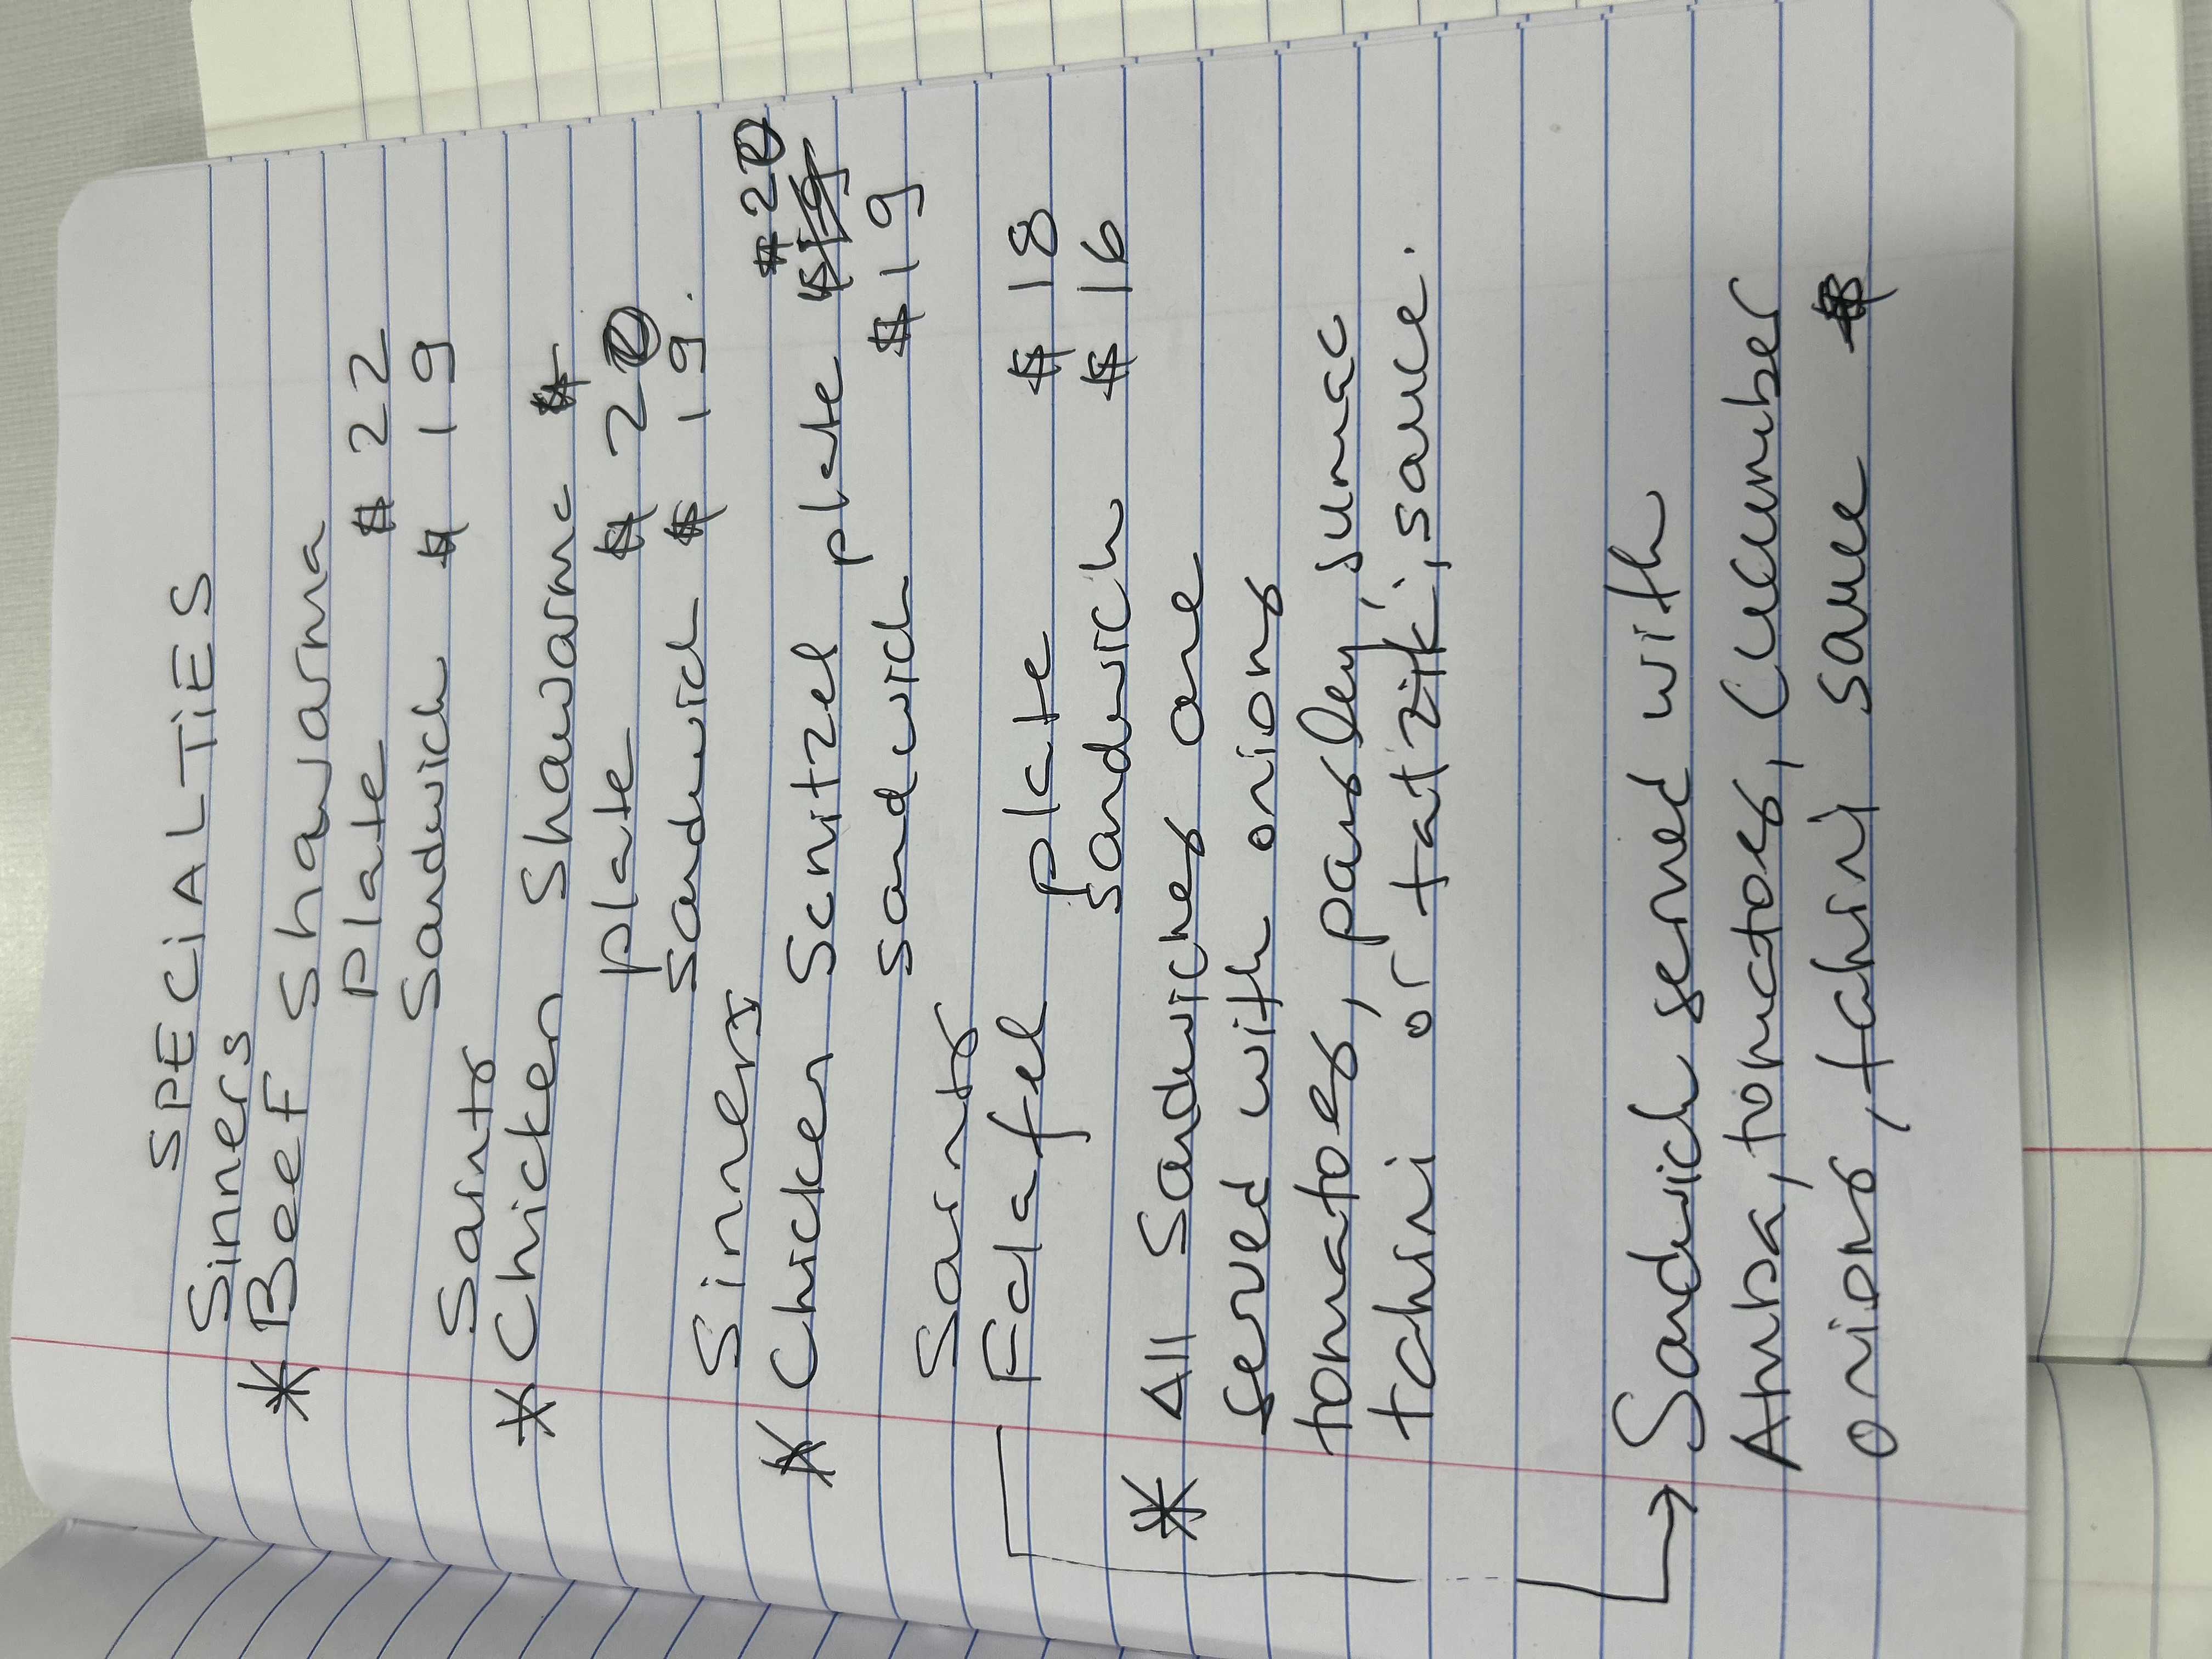 SPECIALTIES
Sinners
* Beef Shawarma
Plate $ 22
Sandwich $ 19
Saints
* Chicken Shawarma
plate $ 20
Sandwich $ 19.
Sinners $20
* Chicken Scnitzel plate $19
sandwich $ 19
Saints
Falafel plate $ 18
Sandwich $ 16
* All Sandwiches are
served with onions
tomatoes, parsley, sumac
tahini or tatziki sauce.
→ Sandwich served with
Amba, tomatoes, Cucumber
onions, tahini sauce